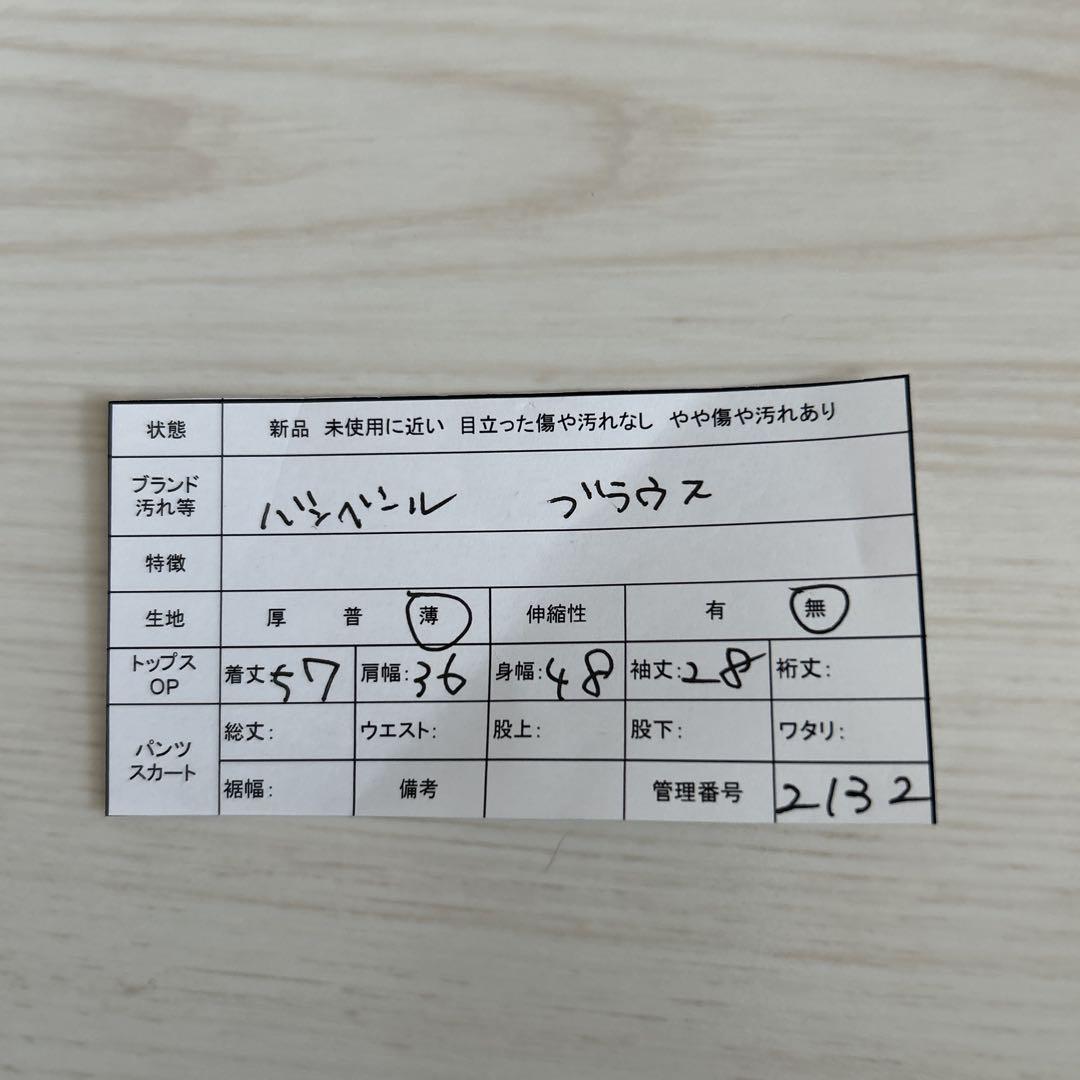 状態 新品 未使用に近い 目立った傷や汚れなし やや傷や汚れあり
ブランド
汚れ等
バンベール ブラウス
特徴
生地 厚 普 薄 伸縮性 有 無
トップス
OP
着丈:57 肩幅:36 身幅:48 袖丈:28 裄丈:
パンツ
スカート
総丈: ウエスト: 股上: 股下: ワタリ:
裾幅: 備考 管理番号 2132